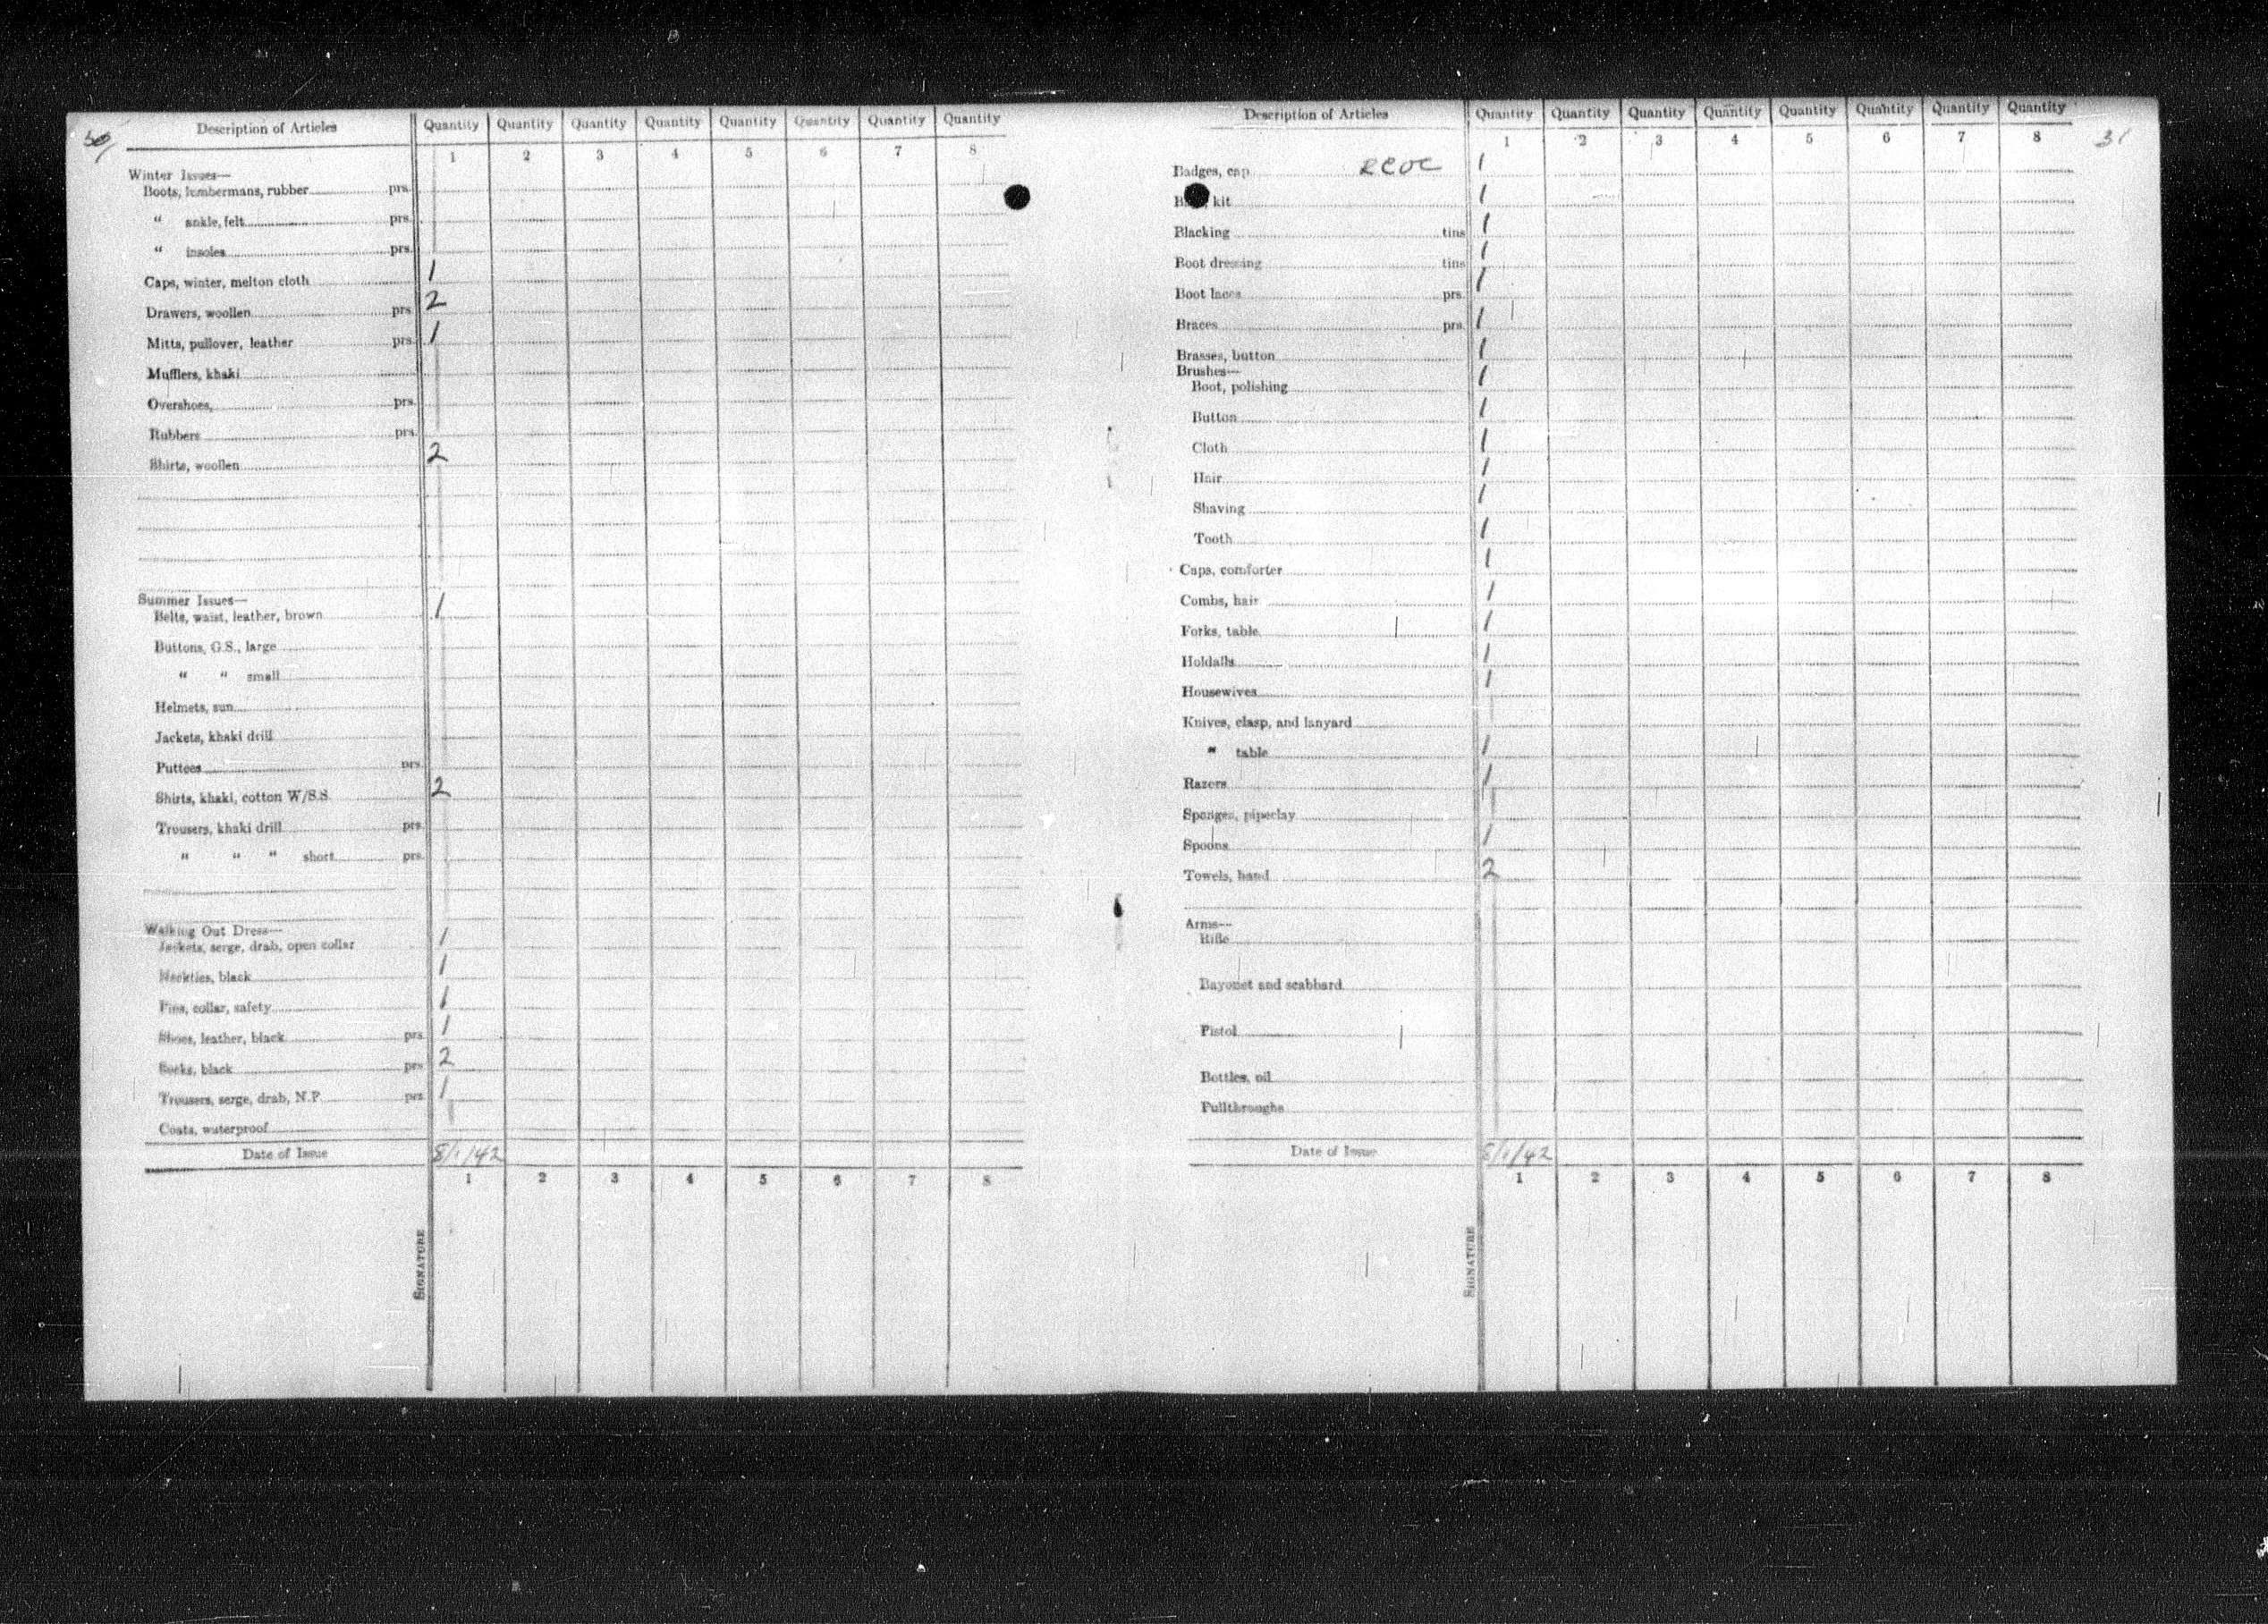 30
Description of Articles Quantity Quantity Quantity Quantity Quantity Quantity Quantity Quantity
1 2 3 4 5 6 7 8
Winter Issues—
Boots, lumbermans, rubber prs.
" ankle, felt prs.
" insoles prs.
Caps, winter, melton cloth 1
Drawers, woollen prs. 2
Mitts, pullover, leather prs. 1
Mufflers, khaki
Overshoes, prs.
Rubbers prs.
Shirts, woollen 2
Summer Issues—
Belts, waist, leather, brown 1
Buttons, G.S., large
" " small
Helmets, sun
Jackets, khaki drill
Puttees prs.
Shirts, khaki, cotton W/S.S. 2
Trousers, khaki drill prs.
" " " short prs.
Walking Out Dress—
Jackets, serge, drab, open collar 1
Neckties, black 1
Pins, collar, safety 1
Shoes, leather, black prs. 1
Socks, black prs. 2
Trousers, serge, drab, N.P. prs. 1
Coats, waterproof
Date of Issue 8/1/42
1 2 3 4 5 6 7 8
SIGNATURE
31
Description of Articles Quantity Quantity Quantity Quantity Quantity Quantity Quantity Quantity
1 2 3 4 5 6 7 8
Badges, cap RCOC 1
kit 1
Blacking tins 1
Boot dressing tins 1
Boot laces prs. 1
Braces prs. 1
Brasses, button 1
Brushes—
Boot, polishing 1
Button 1
Cloth 1
Hair 1
Shaving 1
Tooth 1
Caps, comforter 1
Combs, hair 1
Forks, table 1
Holdalls 1
Housewives 1
Knives, clasp, and lanyard
" table 1
Razors 1
Sponges, pipeclay
Spoons 1
Towels, hand 2
Arms—
Rifle
Bayonet and scabbard
Pistol
Bottles, oil
Pullthroughs
Date of Issue 8/1/42
1 2 3 4 5 6 7 8
SIGNATURE